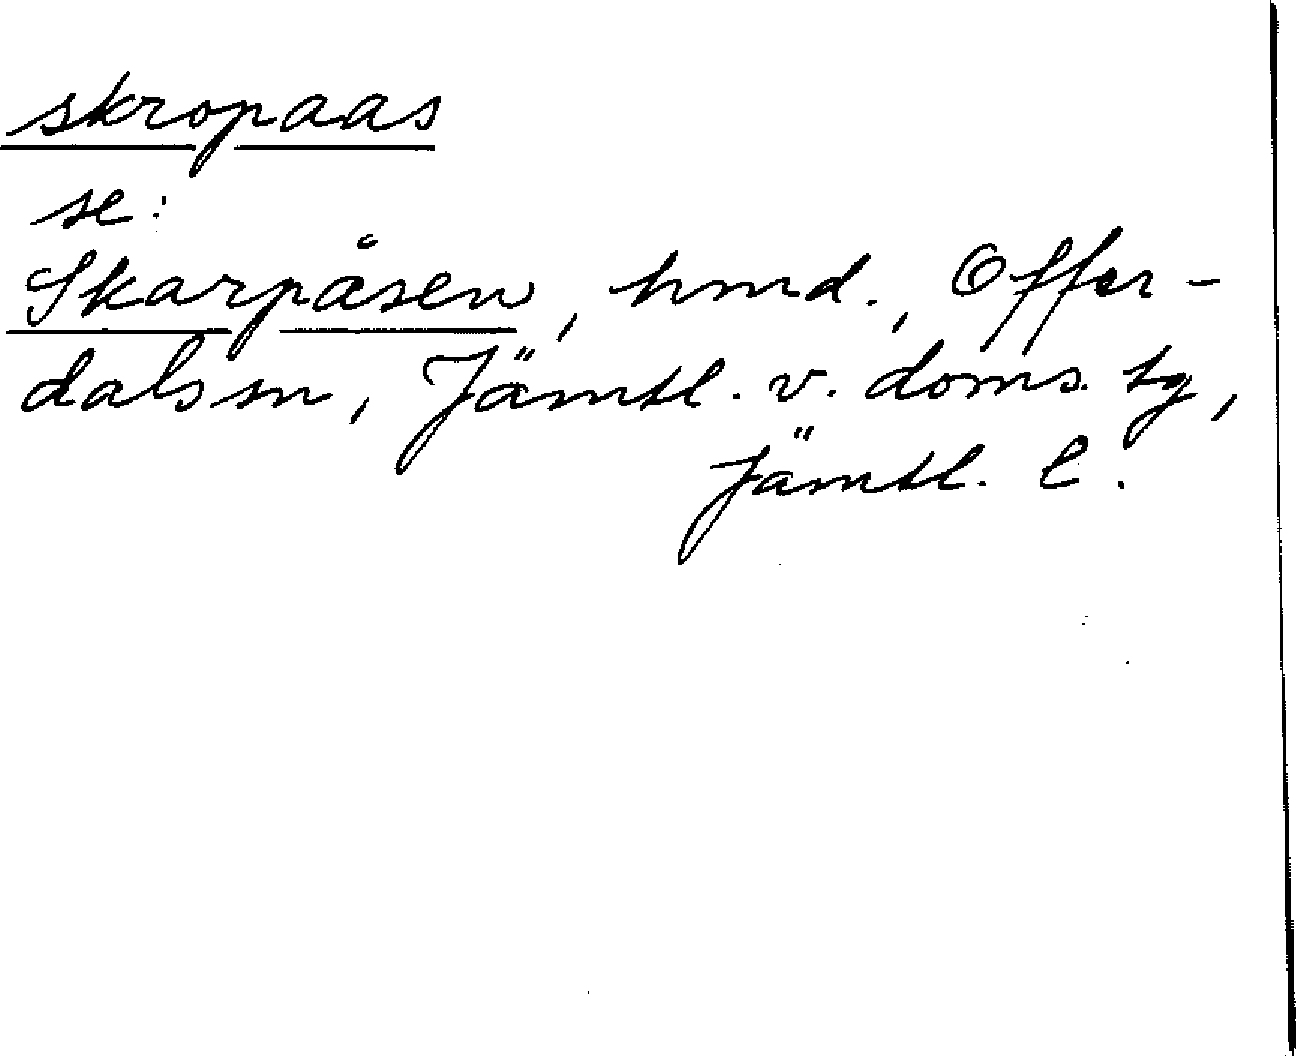 skropaas
se:
Skarpåsen, hmd., Offer-
dals sn, Jämtl. v. doms. tg,
Jämtl. l.